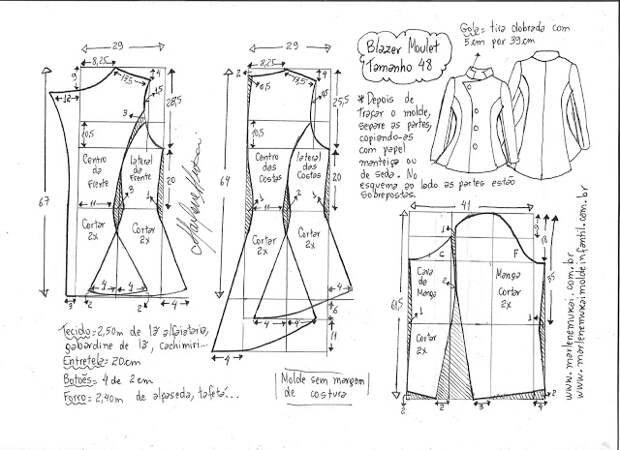 Blazer Moulet
Tamanho 48
Gola = tira dobrada com
5 cm por 39 cm
* Depois de
traçar o molde,
separe as partes,
copiando-as
com papel
manteiga ou
de seda. No
esquema ao lado as partes estão
sobrepostas.
29
8,25
9
13,5
4
1,5
12
28,5
3
10,5
67
Centro da
Frente
lateral da
Frente
20
11
3
1
Cortar
2x
Cortar
2x
4
4
3
2
2
4
29
8,25
2
4
0,5
13,5
25,5
10,5
64
Centro
das
Costas
lateral
das
Costas
20
1
11
1
Cortar
2x
Cortar
2x
4
4
4
4
6
11
41
1
C
F
2
Cava da
Manga
Manga
Cortar
2x
Cortar
2x
61,5
1
1
2
2
3
4
Tecido = 2,50m de lã alfaiataria,
gabardine de lã, cachimiri...
Entretela = 20cm
Botões = 4 de 2cm
Forro = 2,40m de alpaseda, tafetá...
Molde sem margem
de costura
www.marlenemukai.com.br
www.marlenemukaimoldeinfantil.com.br